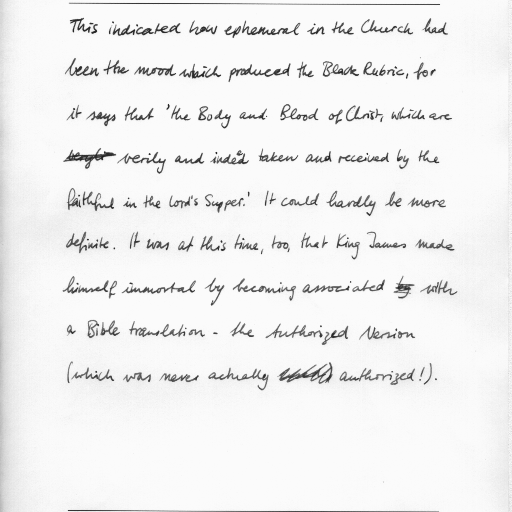 This indicated how ephemeral in the Church had
been the mood which produced the Black Rubric, for
it says that 'the Body and Blood of Christ, which are
verily and indeed taken and received by the
faithful in the Lord's Supper.' It could hardly be more
definite. It was at this time, too, that King James made
himself immortal by becoming associated with
a Bible translation - the Authorized Version
(which was never actually authorized!).